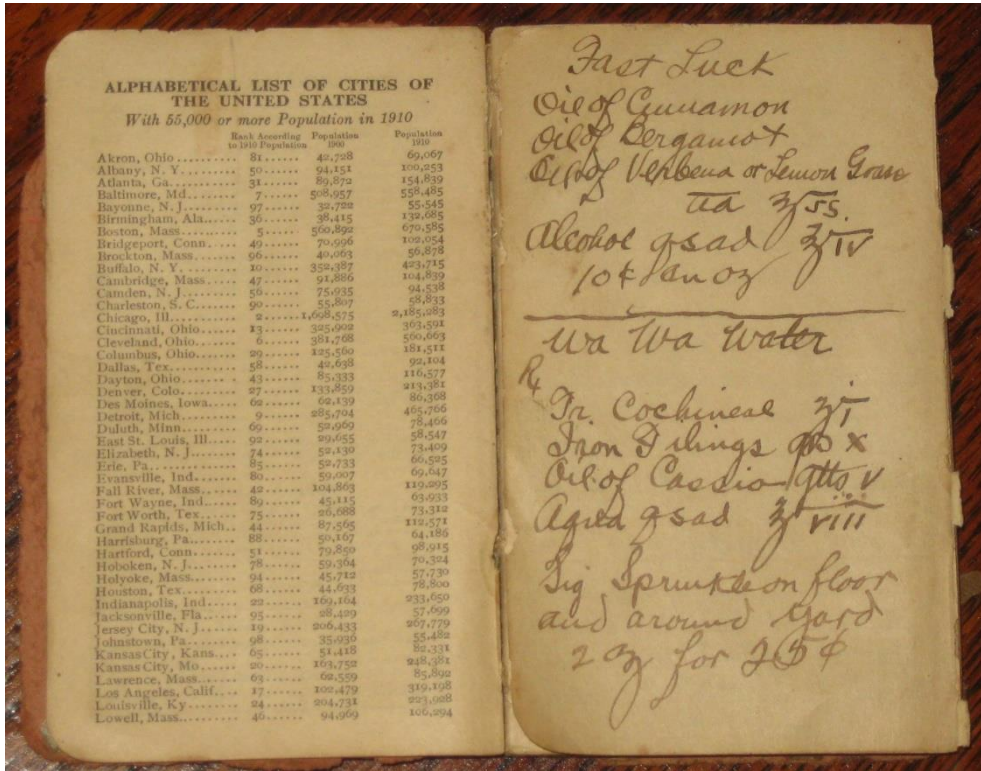 ALPHABETICAL LIST OF CITIES OF
THE UNITED STATES
With 55,000 or more Population in 1910
Rank According Population Population
to 1910 Population 1900 1910
Akron, Ohio ........... 81 ...... 42,728 69,067
Albany, N. Y. ......... 50 ...... 94,151 100,253
Atlanta, Ga. .......... 31 ...... 89,872 154,839
Baltimore, Md. ........ 7 ...... 508,957 558,485
Bayonne, N. J. ........ 97 ...... 32,722 55,545
Birmingham, Ala. ...... 36 ...... 38,415 132,685
Boston, Mass. ......... 5 ...... 560,892 670,585
Bridgeport, Conn. ..... 49 ...... 70,996 102,054
Brockton, Mass. ....... 96 ...... 40,063 56,878
Buffalo, N. Y. ........ 10 ...... 352,387 423,715
Cambridge, Mass. ...... 47 ...... 91,886 104,839
Camden, N. J. ......... 56 ...... 75,935 94,538
Charleston, S. C. ..... 90 ...... 55,807 58,833
Chicago, Ill. ......... 2 ...... 1,698,575 2,185,283
Cincinnati, Ohio ...... 13 ...... 325,902 363,591
Cleveland, Ohio ....... 6 ...... 381,768 560,663
Columbus, Ohio ........ 29 ...... 125,560 181,511
Dallas, Tex. .......... 58 ...... 42,638 92,104
Dayton, Ohio .......... 43 ...... 85,333 116,577
Denver, Colo. ......... 27 ...... 133,859 213,381
Des Moines, Iowa ...... 62 ...... 62,139 86,368
Detroit, Mich. ........ 9 ...... 285,704 465,766
Duluth, Minn. ......... 69 ...... 52,969 78,466
East St. Louis, Ill. .. 92 ...... 29,655 58,547
Elizabeth, N. J. ...... 74 ...... 52,130 73,409
Erie, Pa. ............. 85 ...... 52,733 66,525
Evansville, Ind. ...... 80 ...... 59,007 69,647
Fall River, Mass. ..... 42 ...... 104,863 119,295
Fort Wayne, Ind. ...... 89 ...... 45,115 63,933
Fort Worth, Tex. ...... 75 ...... 26,688 73,312
Grand Rapids, Mich. ... 44 ...... 87,565 112,571
Harrisburg, Pa. ....... 88 ...... 50,167 64,186
Hartford, Conn. ....... 51 ...... 79,850 98,915
Hoboken, N. J. ........ 78 ...... 59,364 70,324
Holyoke, Mass. ........ 94 ...... 45,712 57,730
Houston, Tex. ......... 68 ...... 44,633 78,800
Indianapolis, Ind. .... 22 ...... 169,164 233,650
Jacksonville, Fla. .... 95 ...... 28,429 57,699
Jersey City, N. J. .... 19 ...... 206,433 267,779
Johnstown, Pa. ........ 98 ...... 35,936 55,482
Kansas City, Kans. .... 65 ...... 51,418 82,331
Kansas City, Mo. ...... 20 ...... 163,752 248,381
Lawrence, Mass. ....... 63 ...... 62,559 85,892
Los Angeles, Calif. ... 17 ...... 102,479 319,198
Louisville, Ky. ....... 24 ...... 204,731 223,928
Lowell, Mass. ......... 46 ...... 94,969 106,294
Fast Luck
Oil of Cinnamon
Oil of Bergamot
Oil of Verbena or Lemon Grass
aa ʒ ss.
Alcohol qsad ℥ iv
10¢ an oz
Wa Wa Water
Rx
Tr. Cochineal ʒ i
Iron Filings grs x
Oil of Cassia gtts v
Aqua qsad ℥ viii
Sig Sprinkle on floor
and around yard
2 ℥ for 25¢